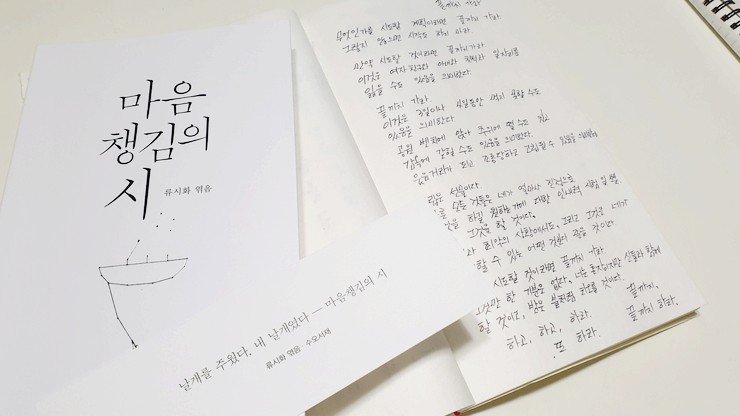 마음
챙김의
시
류시화 엮음
날개를 주웠다, 내 날개였다 — 마음챙김의 시
류시화 엮음 · 수오서재
끝까지 가라
무엇인가를 시도할 계획이라면 끝까지 가라.
그렇지 않으면 시작도 하지 마라.
만약 시도할 것이라면 끝까지 가라.
이것은 여자친구와 아내와 친척과 일자리를
잃을 수도 있음을 의미한다.
끝까지 가라.
이것은 3일이나 4일동안 먹지 못할 수도
있음을 의미한다.
공원 벤치에 앉아 추위에 떨 수도 있고
감옥에 갇힐 수도 있음을 의미한다.
웃음거리가 되고 고립될 수 있음을
립은 선물이다.
모든 것들은 네가 얼마나 진정으로
것을 하길 원하는가에 대한 인내력 시험일 뿐.
그것을 할 것이다.
최악의 상황에서도, 그리고 그것은 네가
할 수 있는 어떤 것보다 좋을 것이다.
시도할 것이라면 끝까지 가라.
그것만 한 기분은 없다. 너는 혼자이지만 신들과 함께
할 것이고, 밤은 불처럼 타오를 것이다.
하고, 하고, 하라. 끝까지,
또 하라. 끝까지 하라.